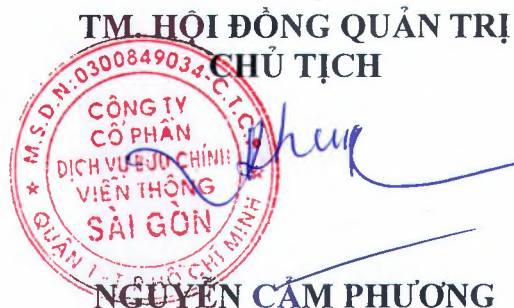 TM. HỘI ĐỒNG QUẢN TRỊ
CHỦ TỊCH
M.S.D.N:0300849034-C.T.C.
CÔNG TY
CỔ PHẦN
DỊCH VỤ BƯU CHÍNH
VIỄN THÔNG
SÀI GÒN
QUẬN 1 - T.P HỒ CHÍ MINH
NGUYỄN CẨM PHƯƠNG